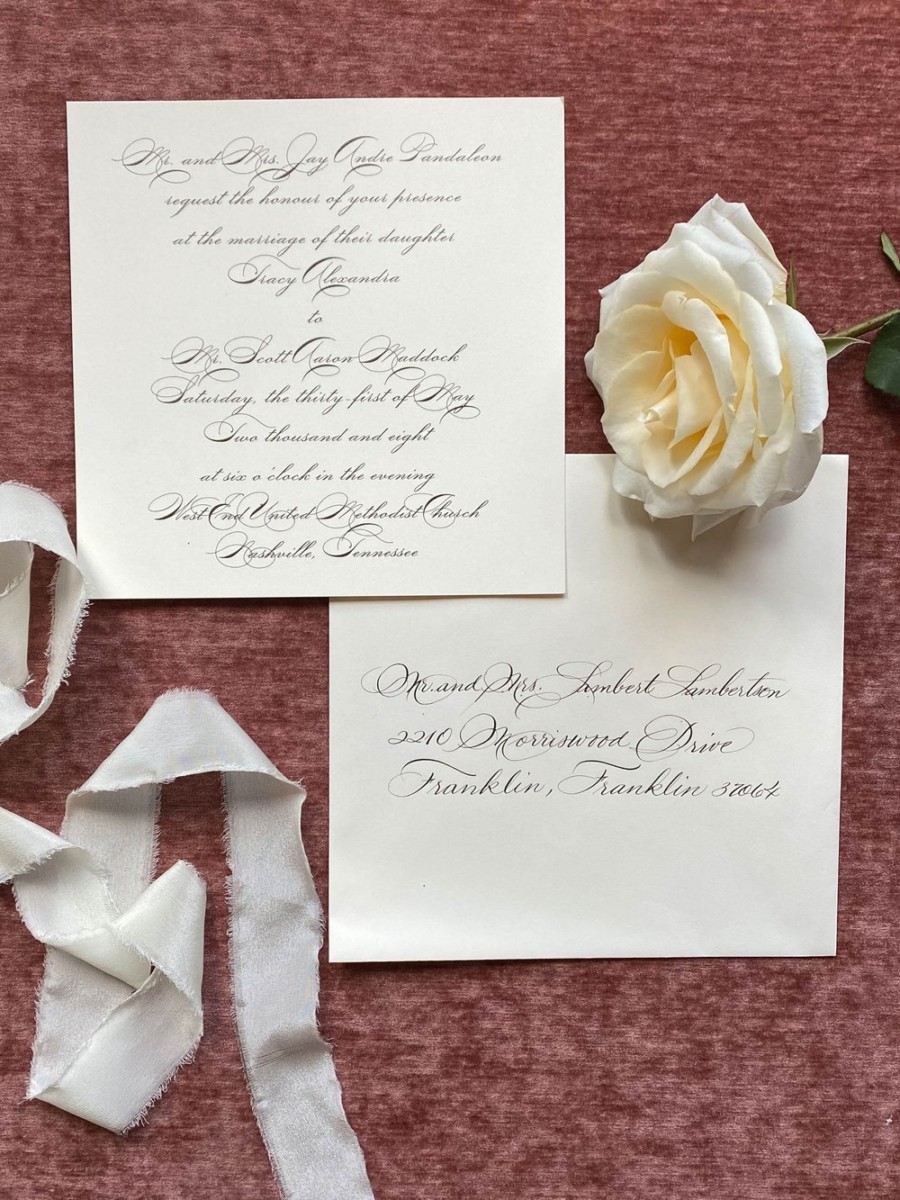 Mr. and Mrs. Jay Andre Pandaleon
request the honour of your presence
at the marriage of their daughter
Tracy Alexandra
to
Mr. Scott Aaron Maddock
Saturday, the thirty-first of May
Two thousand and eight
at six o'clock in the evening
West End United Methodist Church
Nashville, Tennessee
Mr. and Mrs. Lambert Lambertson
2210 Morriswood Drive
Franklin, Franklin 37064